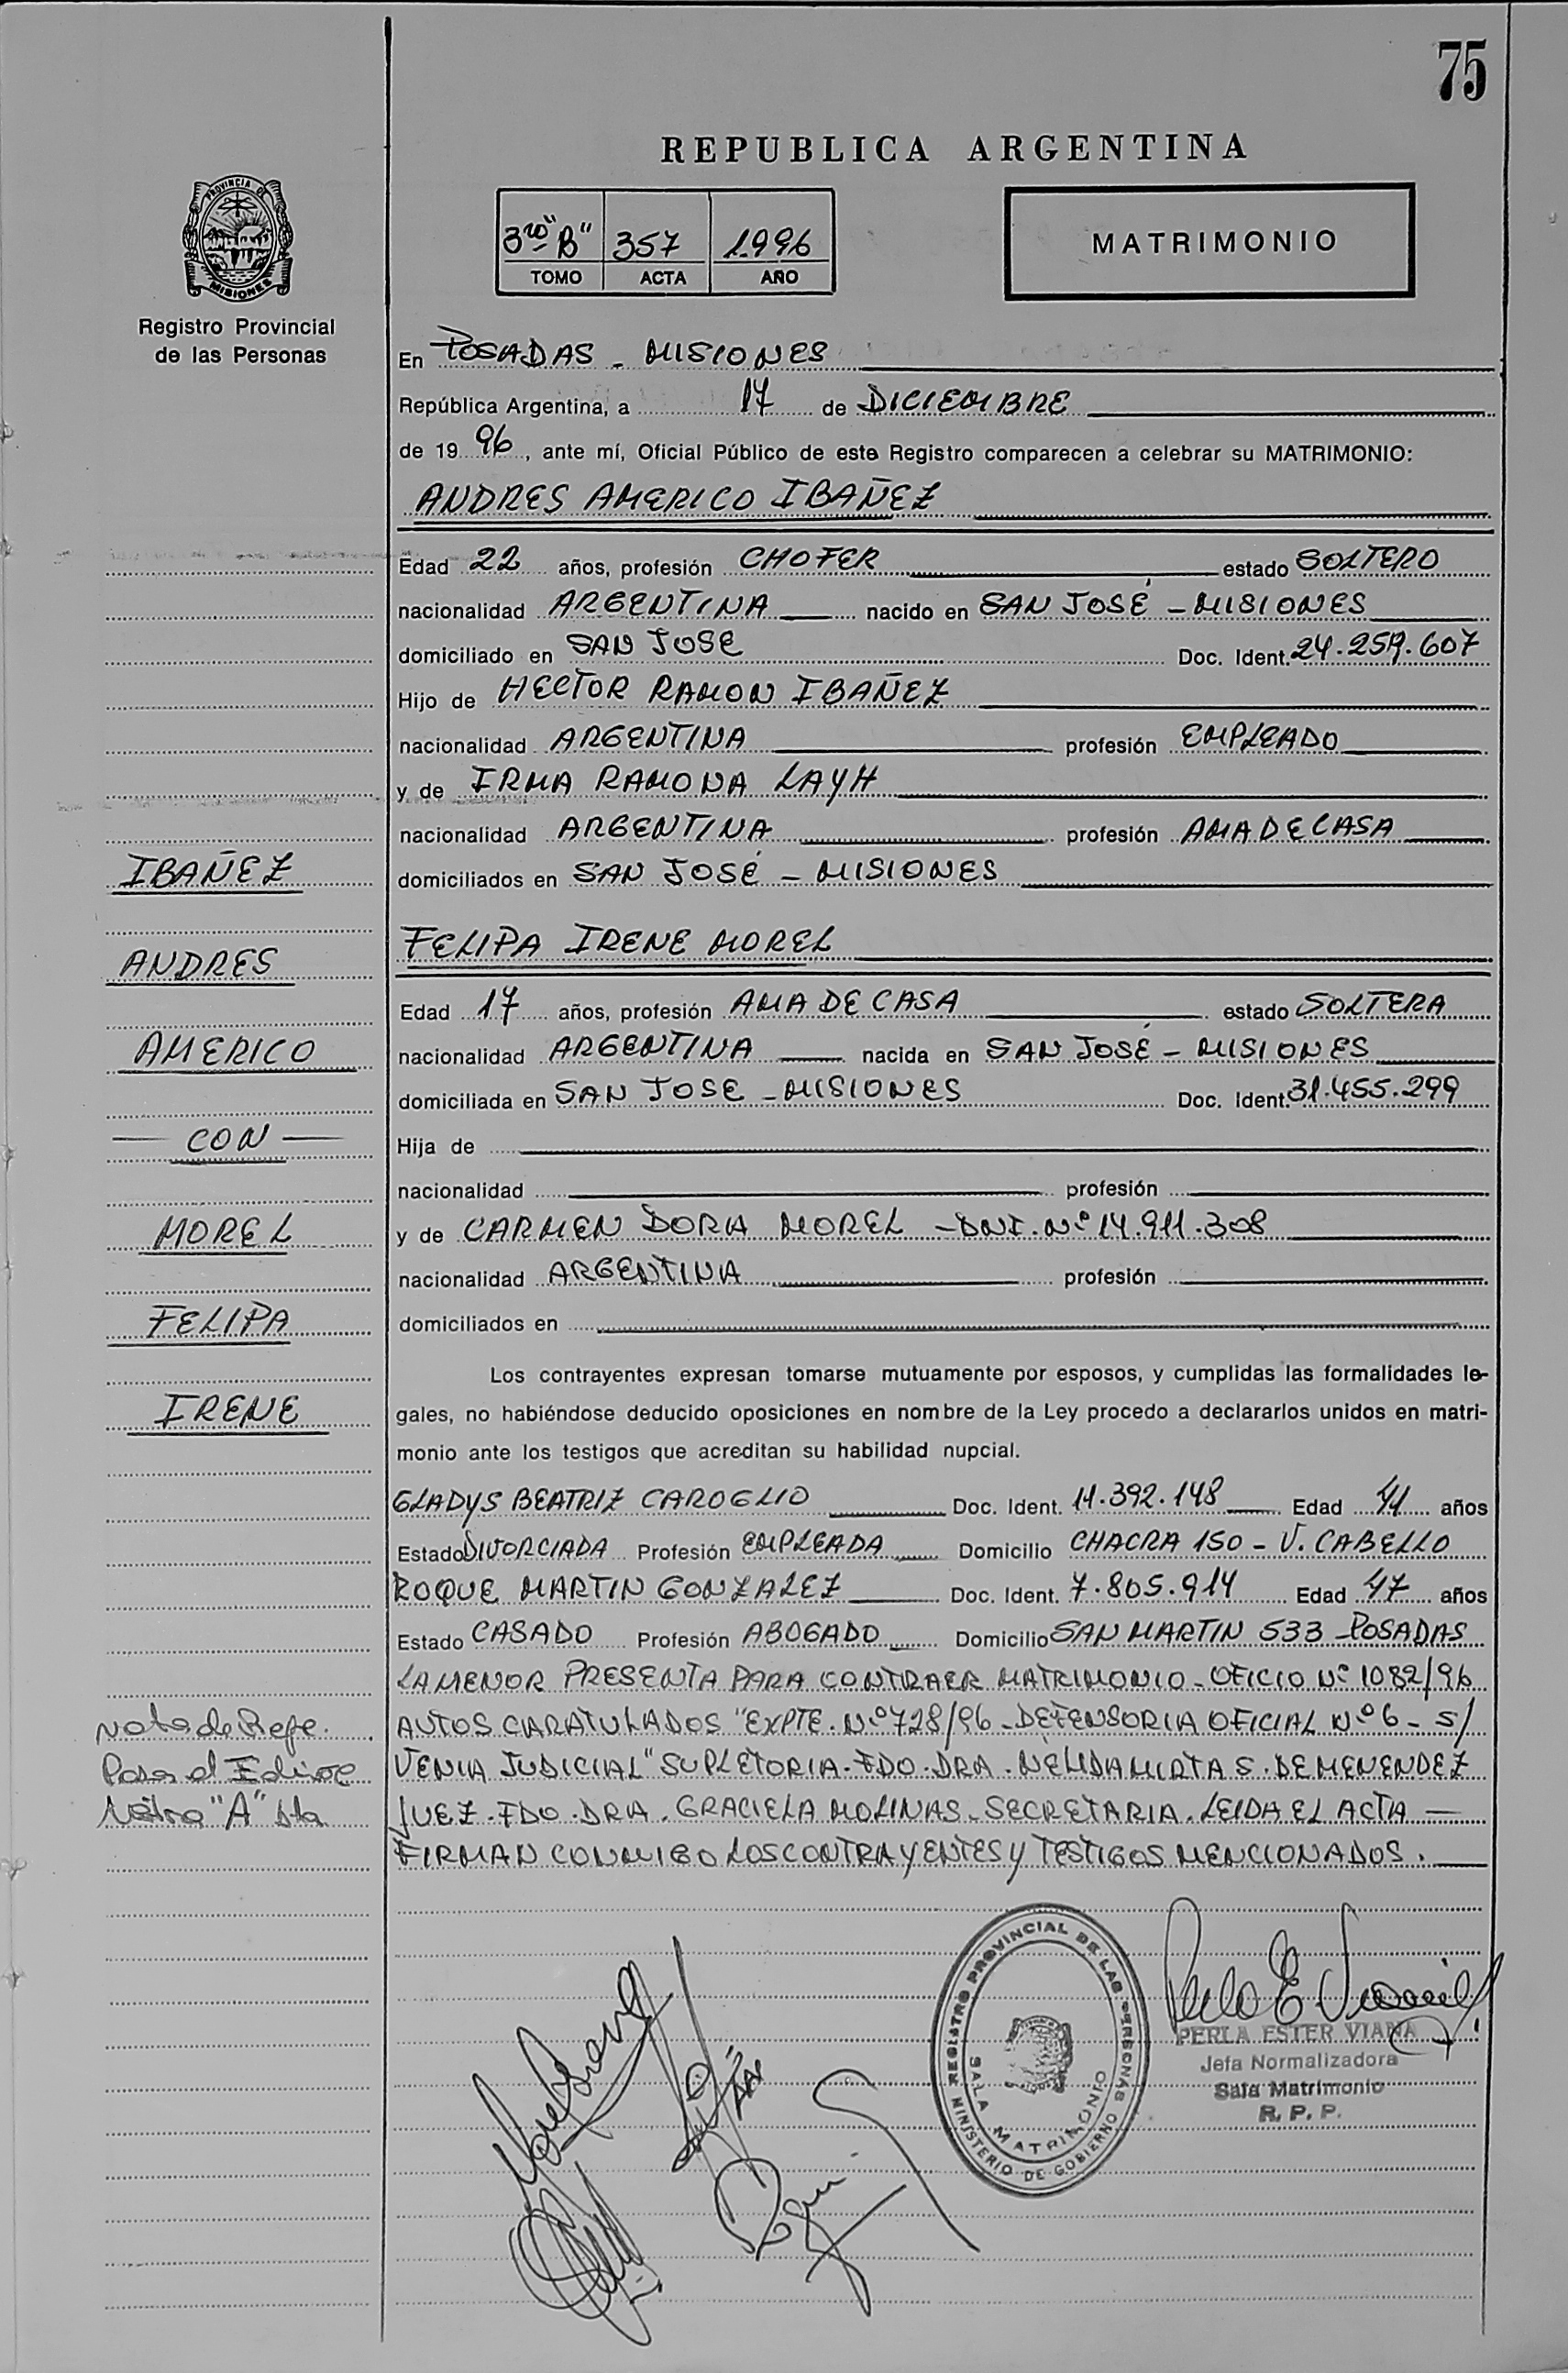 75
REPUBLICA ARGENTINA
PROVINCIA DE
MISIONES
Registro Provincial
de las Personas
3ro "B" 357 1.996
TOMO ACTA AÑO
MATRIMONIO
En POSADAS - MISIONES
República Argentina, a 17 de DICIEMBRE
de 19 96, ante mí, Oficial Público de este Registro comparecen a celebrar su MATRIMONIO:
ANDRES AMERICO IBAÑEZ
Edad 22 años, profesión CHOFER estado SOLTERO
nacionalidad ARGENTINA nacido en SAN JOSÉ - MISIONES
domiciliado en SAN JOSE Doc. Ident. 24.259.607
Hijo de HECTOR RAMON IBAÑEZ
nacionalidad ARGENTINA profesión EMPLEADO
y de IRMA RAMONA LAYH
nacionalidad ARGENTINA profesión AMA DE CASA
domiciliados en SAN JOSÉ - MISIONES
FELIPA IRENE MOREL
Edad 17 años, profesión AMA DE CASA estado SOLTERA
nacionalidad ARGENTINA nacida en SAN JOSÉ - MISIONES
domiciliada en SAN JOSE - MISIONES Doc. Ident. 31.455.299
Hija de
nacionalidad profesión
y de CARMEN DORA MOREL - DNI. Nº 14.911.308
nacionalidad ARGENTINA profesión
domiciliados en
Los contrayentes expresan tomarse mutuamente por esposos, y cumplidas las formalidades le-
gales, no habiéndose deducido oposiciones en nombre de la Ley procedo a declararlos unidos en matri-
monio ante los testigos que acreditan su habilidad nupcial.
GLADYS BEATRIZ CAROGLIO Doc. Ident. 11.392.148 Edad 41 años
Estado DIVORCIADA Profesión EMPLEADA Domicilio CHACRA 150 - V. CABELLO
ROQUE MARTIN GONZALEZ Doc. Ident. 7.805.914 Edad 47 años
Estado CASADO Profesión ABOGADO Domicilio SAN MARTIN 533 - POSADAS
LA MENOR PRESENTA PARA CONTRAER MATRIMONIO - OFICIO Nº 1082/96
AUTOS CARATULADOS "EXPTE. Nº 728/96 - DEFENSORIA OFICIAL Nº 6 - S/
VENIA JUDICIAL" SUPLETORIA. FDO. DRA. NELIDA MIRTA S. DE MENENDEZ
JUEZ. FDO. DRA. GRACIELA MOLINAS. SECRETARIA. LEIDA EL ACTA
FIRMAN CONMIGO LOS CONTRAYENTES Y TESTIGOS MENCIONADOS.
IBAÑEZ
ANDRES
AMERICO
CON
MOREL
FELIPA
IRENE
Nota de Refe.
"A"
REGISTRO PROVINCIAL DE LAS PERSONAS
MINISTERIO DE GOBIERNO
SALA MATRIMONIO
PERLA ESTER VIANA
Jefa Normalizadora
Sala Matrimonio
R. P. P.